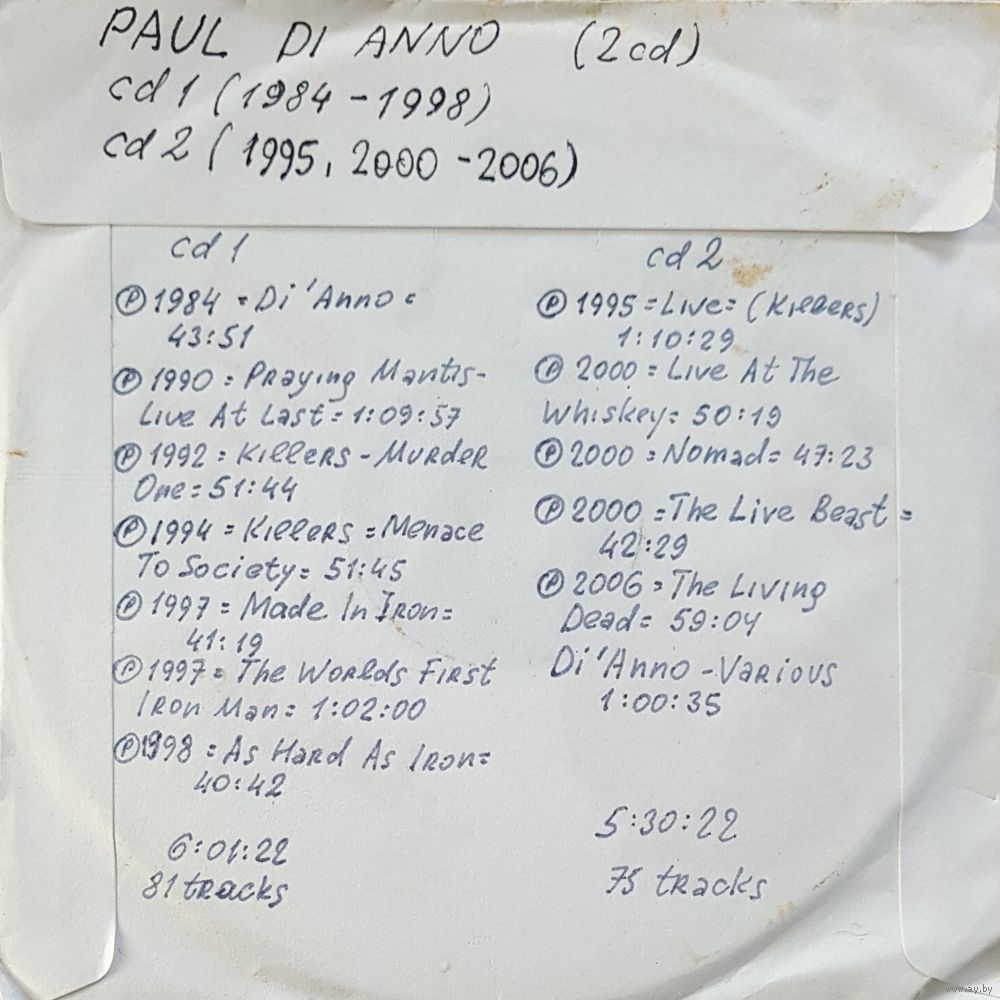 PAUL DI ANNO (2cd)
cd 1 (1984 - 1998)
cd 2 (1995, 2000 - 2006)
cd 1
Ⓟ 1984 = Di'Anno =
43:51
Ⓟ 1990 = Praying Mantis -
Live At Last = 1:09:57
Ⓟ 1992 = Killers - Murder
One = 51:44
Ⓟ 1994 = Killers = Menace
To Society = 51:45
Ⓟ 1997 = Made In Iron =
41:19
Ⓟ 1997 = The Worlds First
Iron Man = 1:02:00
Ⓟ 1998 = As Hard As Iron =
40:42
6:01:22
81 tracks
cd 2
Ⓟ 1995 = Live = (Killers)
1:10:29
Ⓟ 2000 = Live At The
Whiskey = 50:19
Ⓟ 2000 = Nomad = 47:23
Ⓟ 2000 = The Live Beast =
42:29
Ⓟ 2006 = The Living
Dead = 59:04
Di'Anno - Various
1:00:35
5:30:22
75 tracks
www.ay.by